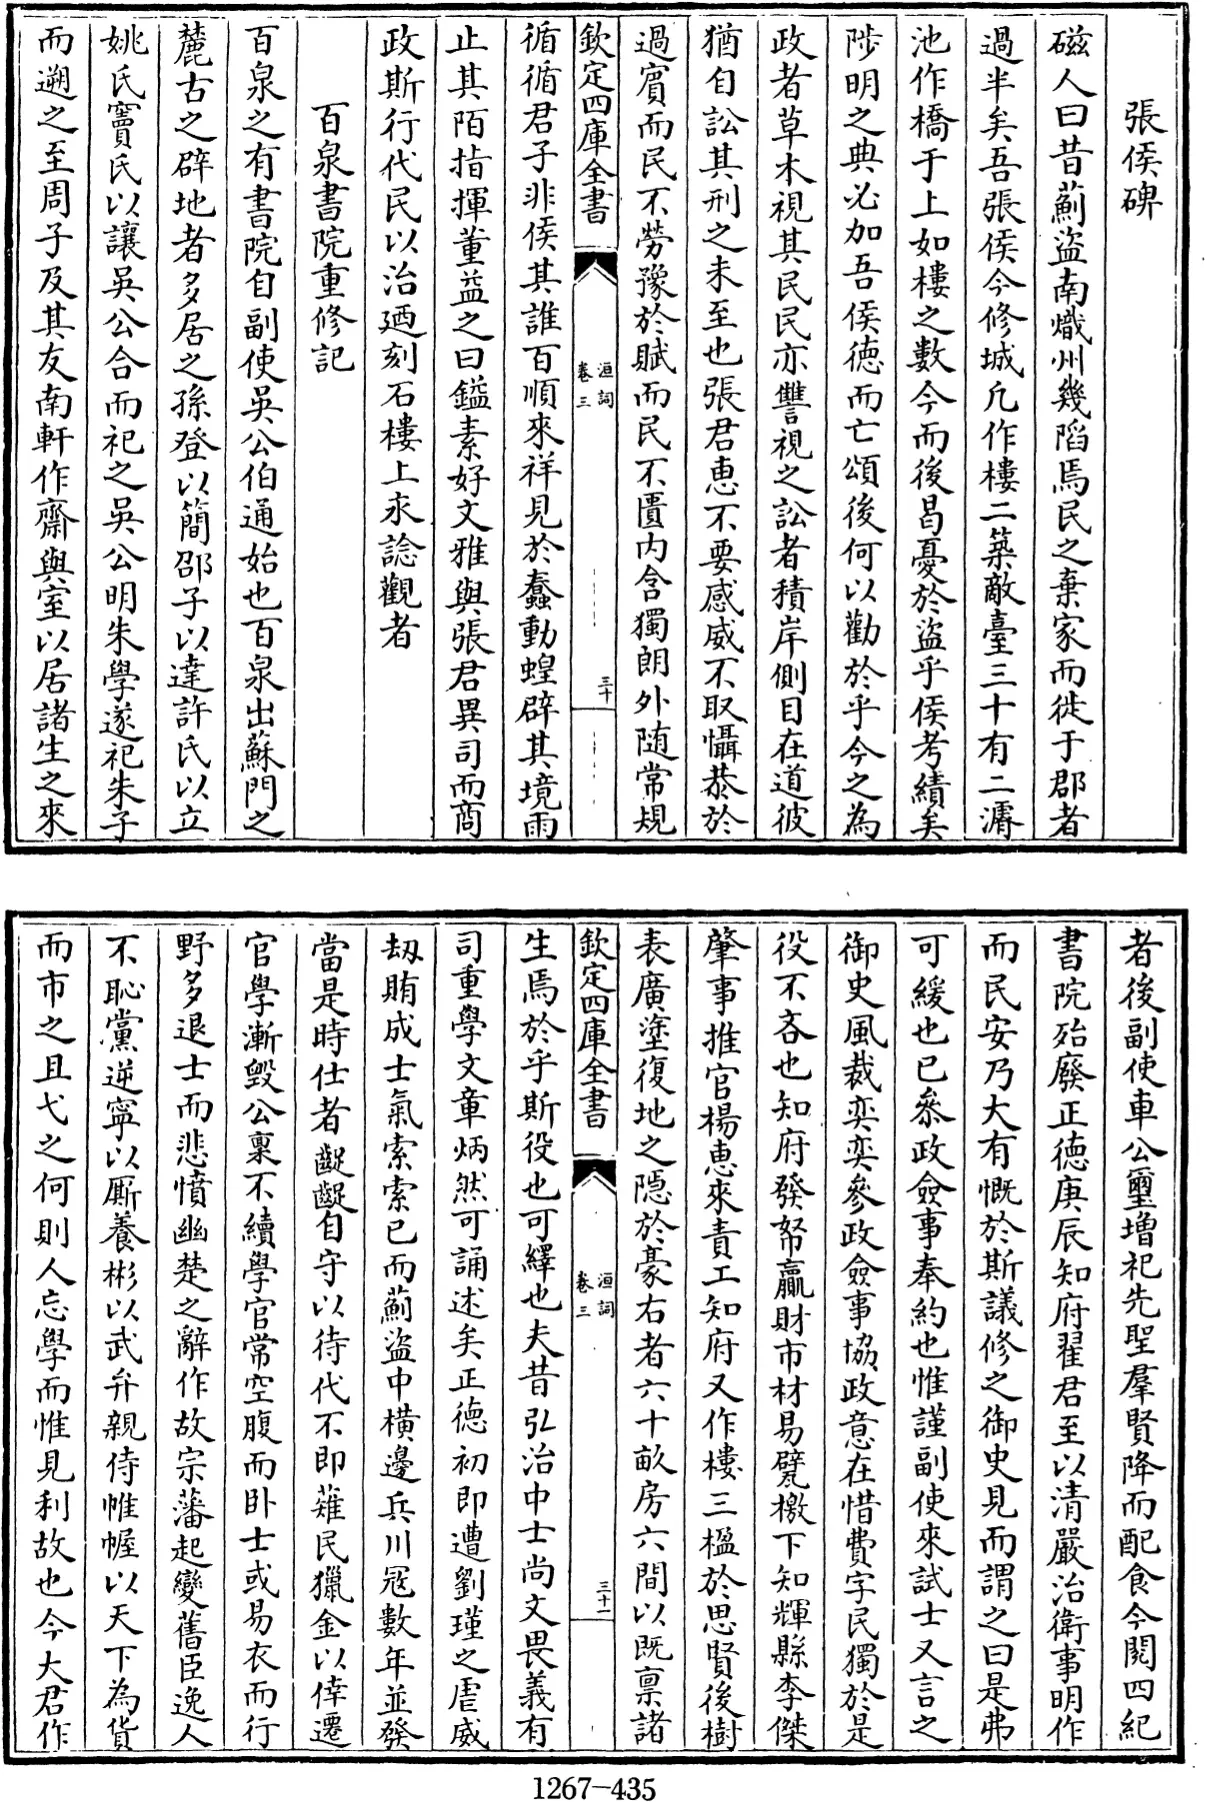 張侯碑
磁人曰昔薊盜南熾州幾陷焉民之棄家而徙于郡者
過半矣吾張侯今修城凡作樓二築敵臺三十有二濬
池作橋于上如樓之數今而後曷憂於盜乎侯考績矣
陟明之典必加吾侯德而亡頌後何以勸於乎今之為
政者草木視其民民亦讐視之訟者積岸側目在道彼
猶自訟其刑之未至也張君惠不要感威不取懾恭於
過賓而民不勞豫於賦而民不匱内含獨朗外随常規
欽定四庫全書
洹詞
卷三
三十
循循君子非侯其誰百順來祥見於蠢動蝗辟其境雨
止其陌指揮董益之曰鎰素好文雅與張君異司而商
政斯行代民以治廼刻石樓上永諗觀者
百泉書院重修記
百泉之有書院自副使吳公伯通始也百泉出蘇門之
麓古之辟地者多居之孫登以簡邵子以達許氏以立
姚氏竇氏以讓吳公合而祀之吳公明朱學遂祀朱子
而遡之至周子及其友南軒作齋與室以居諸生之來
者後副使車公璽增祀先聖羣賢降而配食今閱四紀
書院殆廢正德庚辰知府翟君至以清嚴治衛事明作
而民安乃大有慨於斯議修之御史見而謂之曰是弗
可緩也已叅政僉事奉約也惟謹副使來試士又言之
御史風裁奕奕參政僉事協政意在惜費字民獨於是
役不吝也知府發帑贏財市材易甓檄下知輝縣李傑
肇事推官楊惠來責工知府又作樓三楹於思賢後樹
表廣塗復地之隠於豪右者六十畝房六間以既禀諸
欽定四庫全書
洹詞
卷三
三十一
生焉於乎斯役也可繹也夫昔弘治中士尚文畏義有
司重學文章炳然可誦述矣正德初即遭劉瑾之虐威
刼賄成士氣索索已而薊盜中橫邊兵川冦數年並發
當是時仕者齪齪自守以待代不即薙民獵金以倖遷
官學漸毀公稟不續學官常空腹而卧士或易衣而行
野多退士而悲憤幽楚之辭作故宗藩起變舊臣逸人
不恥黨逆寧以厮養彬以武弁親侍帷幄以天下為貨
而市之且弋之何則人忘學而惟見利故也今大君作
1267-435